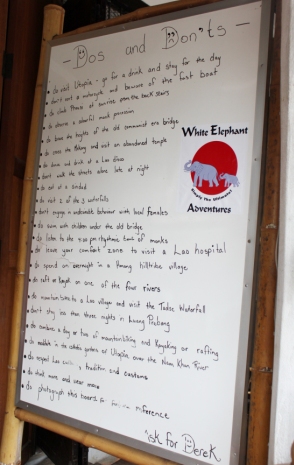 - Dos and Don'ts -
• do visit Utopia - go for a drink and stay for the day
• don't rent a motorcycle and beware of the fast boat
• do climb Phousi at sunrise from the back stairs
• do observe a colorful monk procession
• do brave the heights of the old communist era bridge
• do cross the Mekong and visit an abandoned temple
• do dance and drink at a Lao disco
• don't walk the streets alone late at night
• do eat at a sindad
• do visit 1 of the 3 waterfalls
• don't engage in undesirable behavior with local females
• do swim with children under the old bridge
• do listen to the 4:00 pm rhythmic of monks
• do leave your comfort zone to visit a Lao hospital
• do spend an overnight in a Hmong hilltribe village
• do raft or kayak on one of the four rivers
• do mountain bike to a Lao village and visit the Tadse Waterfall
• don't stay less than three nights in Luang Prabang
• do combine a day or two of mountainbiking and Kayaking or rafting
• do meditate in the garden of Utopia, over the Nam Khan River
• do respect Lao tradition and customs
• do smile more and wear more
• do photograph this board for reference
Ask for Derek
White Elephant
Adventures